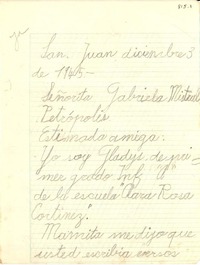 San Juan diciembre 3
de 1945-
Señorita Gabriela Mistral
Petrópolis
Estimada amiga:
Yo soy Gladys de pri-
mer grado Inf. "U"
de la escuela "Clara Rosa
Cortínez".
Mamita me dijo que
usted escribía versos